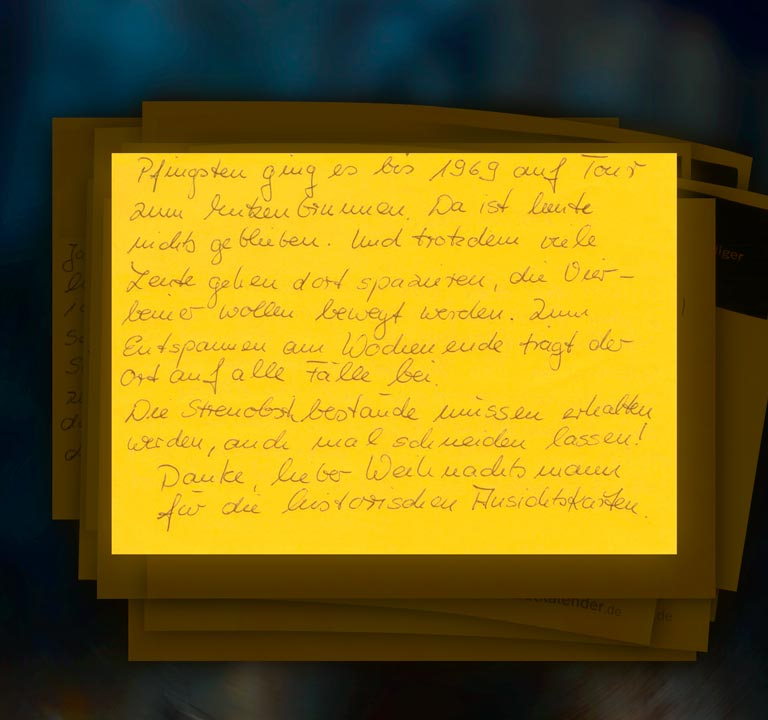 Pfingsten ging es bis 1969 auf Tour
zum Mutzenbrunnen. Da ist heute
nichts geblieben. Und trotzdem viele
Leute gehen dort spazieren, die Vier-
beiner wollen bewegt werden. Zum
Entspannen am Wochenende trägt der
Ort auf alle Fälle bei.
Die Streuobstbestände müssen erhalten
werden, auch mal schneiden lassen!
Danke, lieber Weihnachtsmann
für die historischen Ansichtskarten.
iger
kalender.de
.de